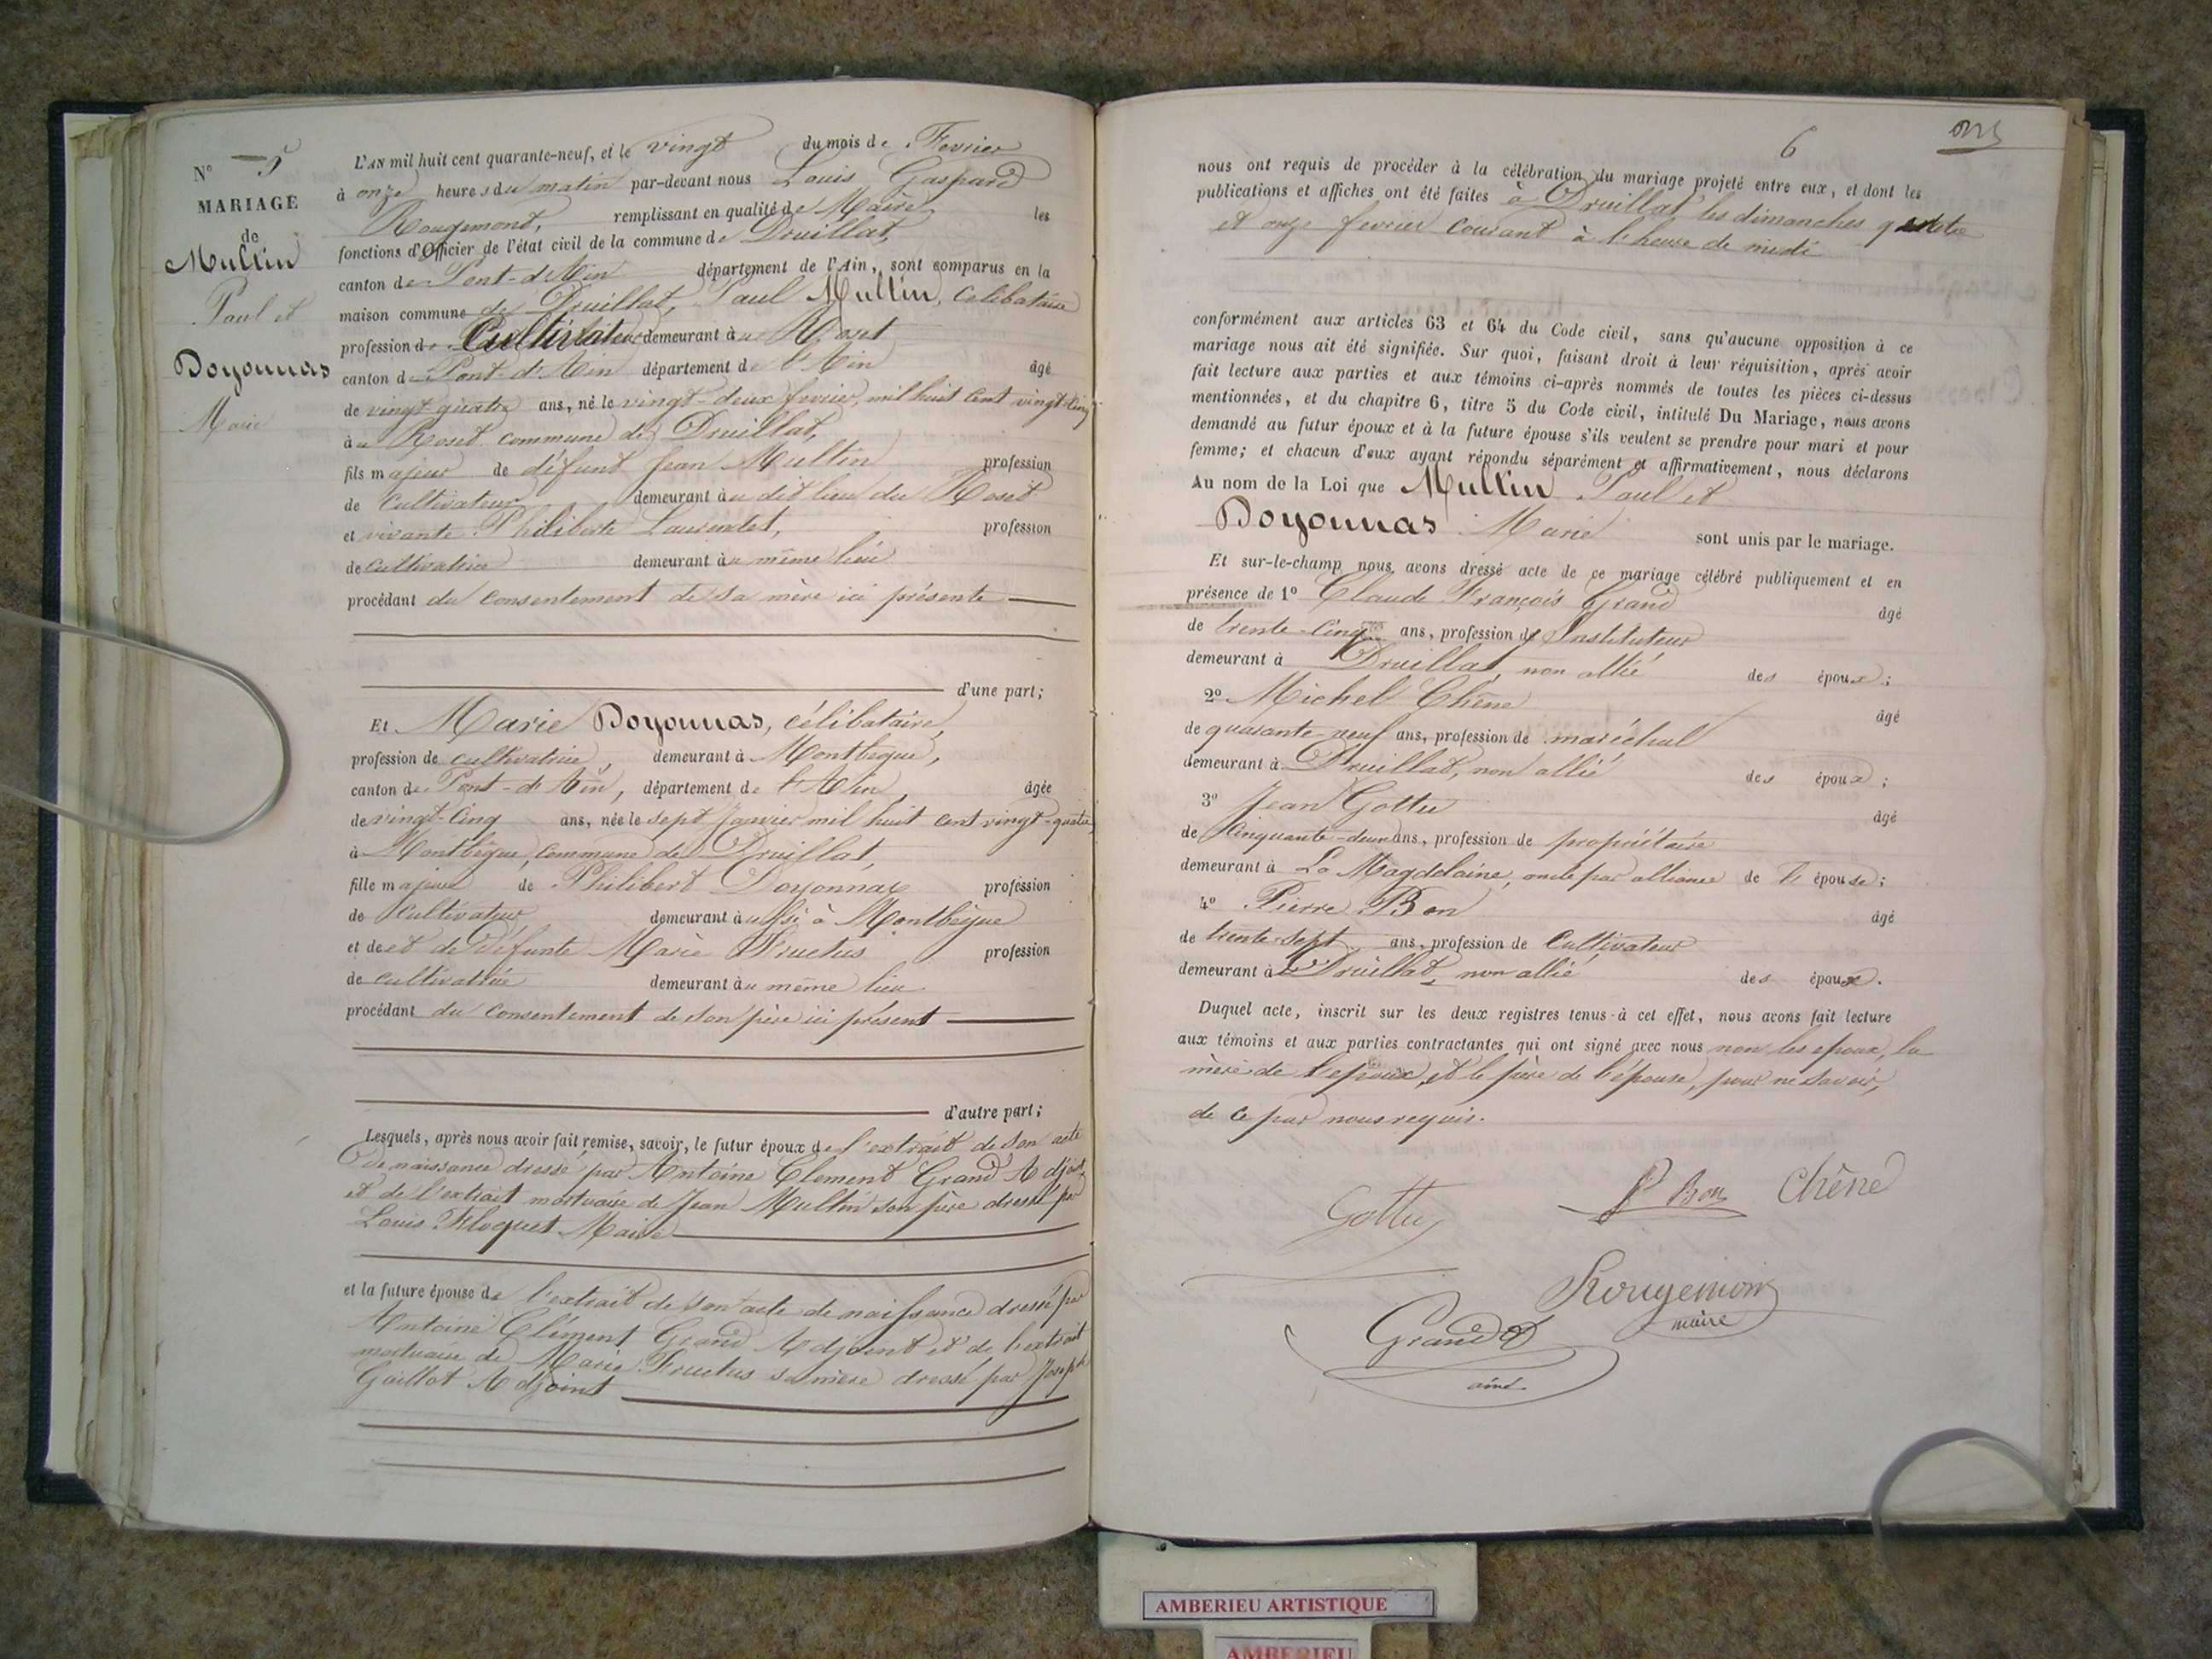 N° 5
MARIAGE
de
Mullin
Paul et
Doyonnas
Marie
L'AN mil huit cent quarante-neuf, et le vingt du mois de Fevrier
à onze heures du matin par-devant nous Louis Gaspard
Rougemont, remplissant en qualité de Maire les
fonctions d'Officier de l'état civil de la commune de Druillat,
canton de Pont-d'Ain département de l'Ain, sont comparus en la
maison commune de Druillat, Paul Mullin, célibataire
profession de Cultivateur demeurant au Roset
canton de Pont-d'Ain département de l'Ain âgé
de vingt quatre ans, né le vingt-deux fevrier, mil huit cent vingt-cinq
au Roset commune de Druillat,
fils majeur de défunt Jean Mullin profession
de Cultivateur demeurant au dit lieu du Roset
et vivante Philiberte Laurendet, profession
de cultivatrice demeurant au même lieu
procédant du consentement de sa mère ici présente
d'une part;
Et Marie Doyonnas, célibataire,
profession de cultivatrice, demeurant à Montbègue,
canton de Pont-d'Ain, département de l'Ain, âgée
de vingt-cinq ans, née le sept Janvier mil huit cent vingt-quatre
à Montbègue, commune de Druillat,
fille majeure de Philibert Doyonnax profession
de Cultivateur demeurant aussi à Montbègue
et de et de défunte Marie Fructus profession
de cultivatrice demeurant au même lieu
procédant du consentement de son père ici présent
d'autre part;
Lesquels, après nous avoir fait remise, savoir, le futur époux de l'extrait de son acte
de naissance dressé par Antoine Clement Grand Adjoint,
et de l'extrait mortuaire de Jean Mullin son père dressé par
Louis Floquet Maire
et la future épouse de l'extrait de son acte de naissance dressé par
Antoine Clément Grand Adjoint et de l'extrait
mortuaire de Marie Fructus sa mère dressé par Joseph
Gaillot Adjoint
6
nous ont requis de procéder à la célébration du mariage projeté entre eux, et dont les
publications et affiches ont été faites à Druillat, les dimanches quatre
et onze fevrier courant à l'heure de midi
conformément aux articles 63 et 64 du Code civil, sans qu'aucune opposition à ce
mariage nous ait été signifiée. Sur quoi, faisant droit à leur réquisition, après avoir
fait lecture aux parties et aux témoins ci-après nommés de toutes les pièces ci-dessus
mentionnées, et du chapitre 6, titre 5 du Code civil, intitulé Du Mariage, nous avons
demandé au futur époux et à la future épouse s'ils veulent se prendre pour mari et pour
femme; et chacun d'eux ayant répondu séparément et affirmativement, nous déclarons
Au nom de la Loi que Mullin Paul et
Doyonnas Marie sont unis par le mariage.
Et sur-le-champ nous avons dressé acte de ce mariage célébré publiquement et en
présence de 1° Claude François Grand âgé
de trente-cinq ans, profession d'Instituteur
demeurant à Druillat, non allié des époux;
2° Michel Chêne âgé
de quarante-neuf ans, profession de maréchal
demeurant à Druillat, non allié des époux;
3° Jean Gottu âgé
de cinquante-deux ans, profession de propriétaire
demeurant à La Magdelaine, oncle par alliance de l'épouse;
4° Pierre Bon âgé
de trente-sept ans, profession de Cultivateur
demeurant à Druillat, non allié des époux.
Duquel acte, inscrit sur les deux registres tenus à cet effet, nous avons fait lecture
aux témoins et aux parties contractantes qui ont signé avec nous non les epoux, la
mère de l'epoux, et le père de l'épouse, pour ne savoir,
de ce par nous requis.
Gottu P Bon Chêne
Rougemont
maire
Grand
ainé
AMBERIEU ARTISTIQUE
AMBERIEU